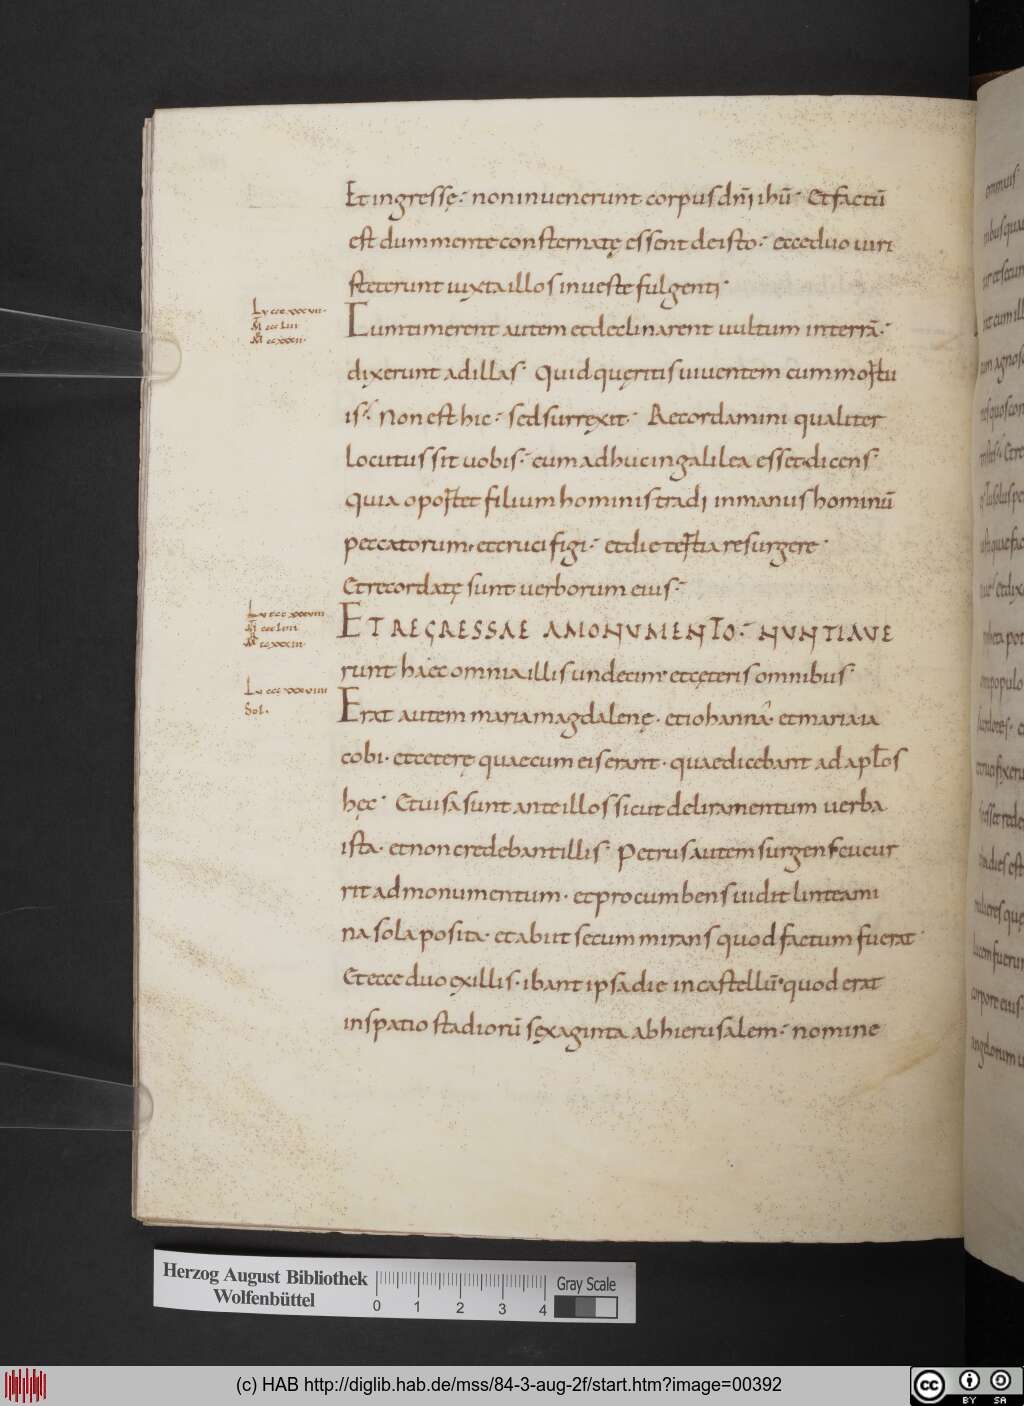 Et ingressę: non invenerunt corpus dn̄i ihū: Et factū
est dum mente consternatę essent de isto: ecce duo viri
steterunt iuxta illos in veste fulgenti
Cum timerent autem et declinarent vultum in terrā:
dixerunt ad illas. Quid quęritis viventem cum mortu
is: Non est hic: sed surrexit. Recordamini qualiter
locutus sit vobis: cum adhuc in galilea esset. dicens.
Quia oportet filium hominis tradi in manus hominū
peccatorum, et crucifigi: et die tertia resurgere.
Et recordatę sunt verborum eius:
ET REGRESSAE A MONUMENTO: NUNTIAVE
runt haec omnia illis undecim et cęteris omnibus
Erat autem maria magdalenę. et iohanna. et maria ia
cobi. et ceterę quae cum eis erant. quae dicebant ad apl̄os
hęc. Et visa sunt ante illos sicut deliramentum verba
ista. et non credebant illis. Petrus autem surgens cucur
rit ad monumentum. et procumbens vidit linteami
na sola posita. et abiit secum mirans quod factum fuerat.
Et ecce duo ex illis. ibant ipsa die in castellū quod erat
in spatio stadiorū sexaginta ab hierusalem: nomine
Herzog August Bibliothek
Wolfenbüttel
0 1 2 3 4
Gray Scale
(c) HAB http://diglib.hab.de/mss/84-3-aug-2f/start.htm?image=00392
cc BY SA